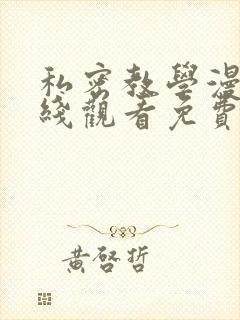 私密教學漫
綫觀看免費
黃啓哲